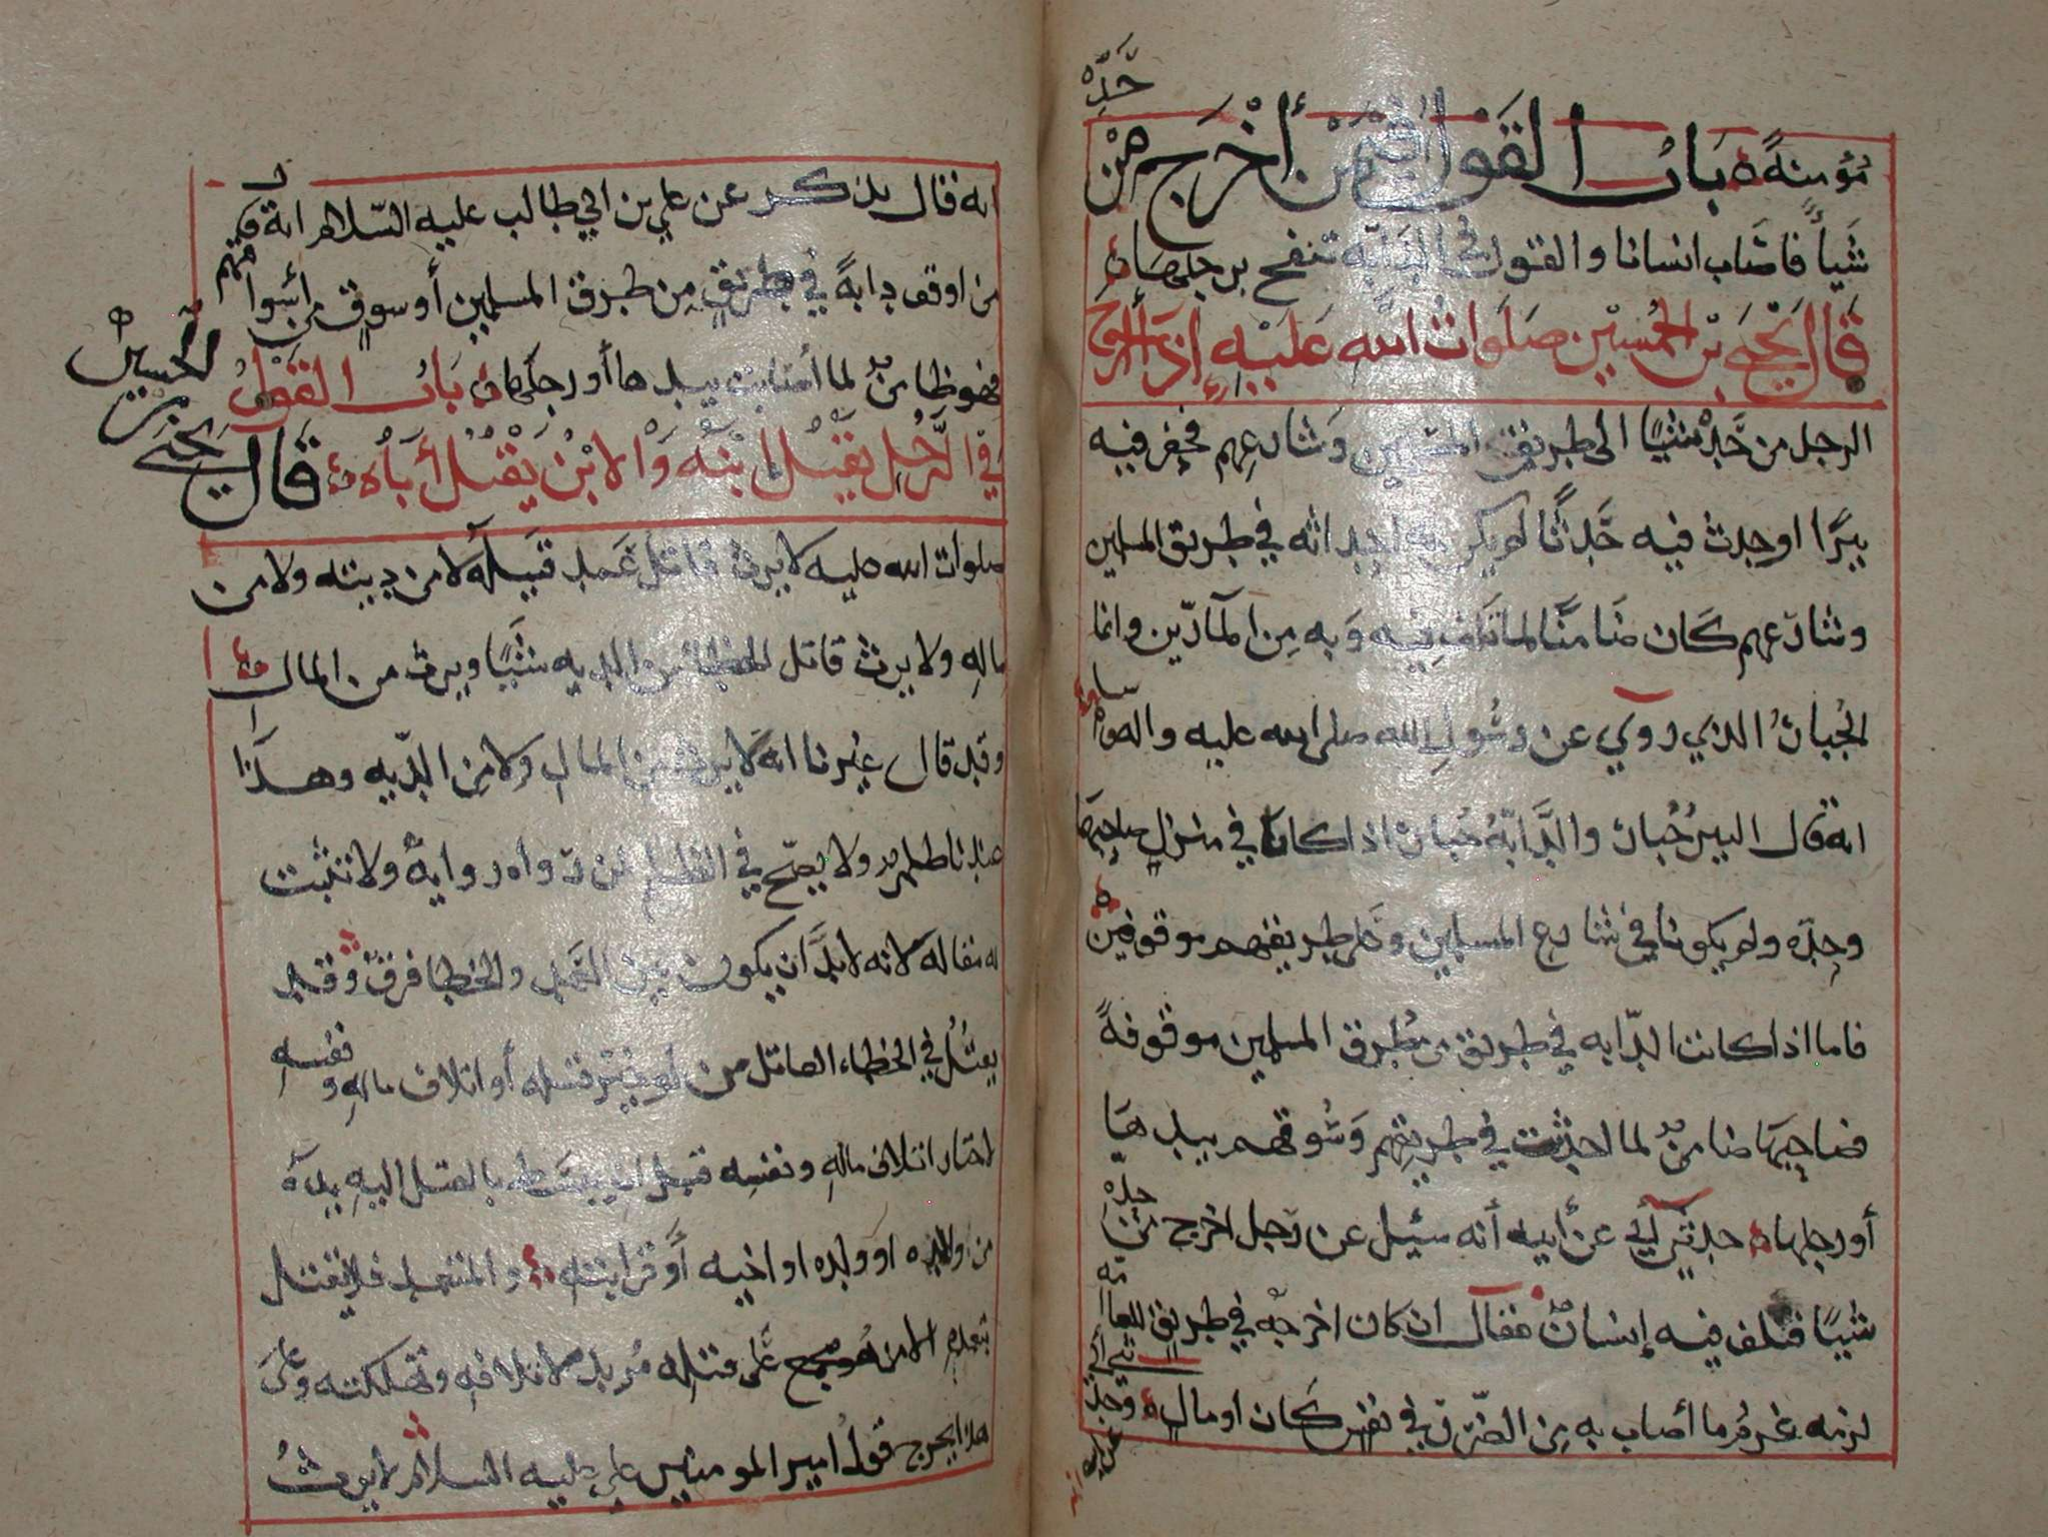 مؤمنةً باب القول فيمن أخرج من
حَدِّه
شيئاً فاصاب انسانا والقول في الدابّة تنفح برجلها
قال يحيى بن الحسين صلوات الله عليه إذا أخرج
الرجل من حَدِّه شيئًا الى طريق المسلمين وشارعهم فحفر فيه
بيرًا او حدث فيه حَدثًا لم يكن احد اثه في طريق المسلمين
وشارعهم كان ضامنًا لما تلف فيه وبه من المآرّين وانما
الجُبارُ الذي روي عن رسول الله صلى الله عليه واله وسلم
انه قال البيرُ جُبار والدَّابّةُ جُبار اذا كانا في منزل صاحبهما
وحدِّه ولم يكونا في شارع المسلمين وعلى طريقهم موقوفين
فاما اذا كانت الدّابه في طريق من طُرق المسلمين موقوفةً
فصاحبها ضامنٌ لما احدثت في طريقهم وسُوقهم بيدها
أو رجلها حدثني أبي عن أبيه أنه سئيل عن رجل اخرج من
حدِّه
شيئًا فتلف فيه إنسانٌ فقال ان كان اخرجه في طريق العامّه
لزمه غُرمُ ما أصاب به من الضرر في نفسٍ كان او مالٍ وحدثني أبي
عن أبيه
انه قال يذكر عن علي بن ابي طالب عليه السلام انه قال
من اوقف دابةً في طريق من طرق المسلمين أو سوقٍ من أسواقهم
فهو ضامنٌ لما أصابت بيدها أو رجلها باب القول
في الرَّجُل يقتل ابنه والابن يقتل أباه قال يحيى
بن الحسين
صلوات الله عليه لا يرث قاتل عَمد قتيله لا من ديته ولا من
ماله ولا يرث قاتل الخطا من الديه شيئًا ويرث من المال
وقد قال غيرنا انه لا يرث من المال ولا من الدّيه وهذا
عندنا ولا يصحّ في لمن رواه روايةٌ ولا تثبت
له مقالة لانه لا بدَّ ان يكون بين العمد والخطا فرقٌ وقد
يقتُلُ في الخطاء القاتل من لو خُيِّر قتله أو اتلاف ماله ونفسه
لاختار اتلاف ماله ونفسه قبل ان يبسط بالقتل اليه يده
من والده او ولده او اخيه أو قرابته والمتعمد فلا يقتل
بتعمده الا من هو مجمع على قتله مُريد لاتلافه وتهلكته وعلى
هذا يخرج قول امير المومنين علي عليه السلام لا يورث